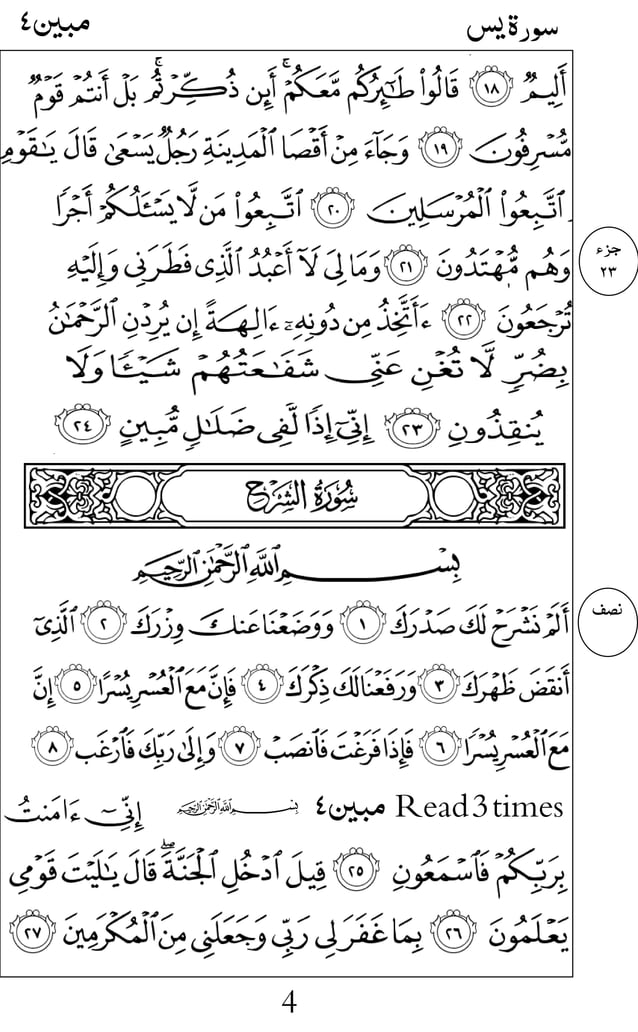 سورة يس مبين٤
أَلِيمٌ ١٨ قَالُوا۟ طَـٰٓئِرُكُم مَّعَكُمْ ۚ أَئِن ذُكِّرْتُم ۚ بَلْ أَنتُمْ قَوْمٌ
مُّسْرِفُونَ ١٩ وَجَآءَ مِنْ أَقْصَا ٱلْمَدِينَةِ رَجُلٌ يَسْعَىٰ قَالَ يَـٰقَوْمِ
ٱتَّبِعُوا۟ ٱلْمُرْسَلِينَ ٢٠ ٱتَّبِعُوا۟ مَن لَّا يَسْـَٔلُكُمْ أَجْرًا
وَهُم مُّهْتَدُونَ ٢١ وَمَا لِىَ لَآ أَعْبُدُ ٱلَّذِى فَطَرَنِى وَإِلَيْهِ
جزء
٢٣
تُرْجَعُونَ ٢٢ ءَأَتَّخِذُ مِن دُونِهِۦٓ ءَالِهَةً إِن يُرِدْنِ ٱلرَّحْمَـٰنُ
بِضُرٍّ لَّا تُغْنِ عَنِّى شَفَـٰعَتُهُمْ شَيْـًٔا وَلَا
يُنقِذُونِ ٢٣ إِنِّىٓ إِذًا لَّفِى ضَلَـٰلٍ مُّبِينٍ ٢٤
سُورَةُ الشَّرْحِ
بِسْمِ ٱللَّهِ ٱلرَّحْمَـٰنِ ٱلرَّحِيمِ
أَلَمْ نَشْرَحْ لَكَ صَدْرَكَ ١ وَوَضَعْنَا عَنكَ وِزْرَكَ ٢ ٱلَّذِىٓ
نصف
أَنقَضَ ظَهْرَكَ ٣ وَرَفَعْنَا لَكَ ذِكْرَكَ ٤ فَإِنَّ مَعَ ٱلْعُسْرِ يُسْرًا ٥ إِنَّ
مَعَ ٱلْعُسْرِ يُسْرًا ٦ فَإِذَا فَرَغْتَ فَٱنصَبْ ٧ وَإِلَىٰ رَبِّكَ فَٱرْغَب ٨
Read 3 times مبين٤ بِسْمِ ٱللَّهِ ٱلرَّحْمَـٰنِ ٱلرَّحِيمِ إِنِّىٓ ءَامَنتُ
بِرَبِّكُمْ فَٱسْمَعُونِ ٢٥ قِيلَ ٱدْخُلِ ٱلْجَنَّةَ ۖ قَالَ يَـٰلَيْتَ قَوْمِى
يَعْلَمُونَ ٢٦ بِمَا غَفَرَ لِى رَبِّى وَجَعَلَنِى مِنَ ٱلْمُكْرَمِينَ ٢٧
4